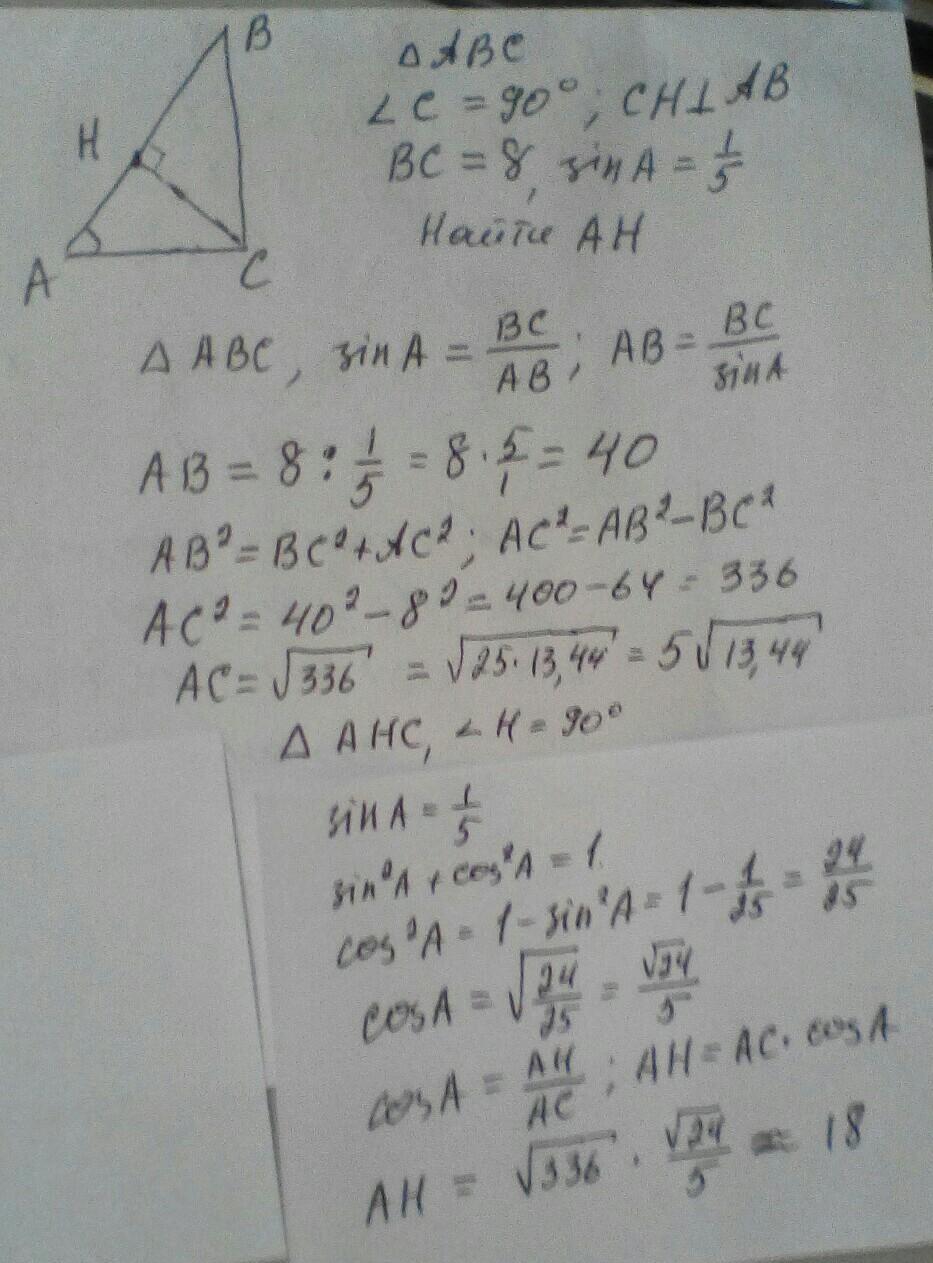 B
H
A
C
△ABC
∠C = 90°; CH⊥AB
BC = 8, sin A = 1/5
Найти AH
△ABC, sin A = BC/AB; AB = BC/sin A
AB = 8 : 1/5 = 8 · 5/1 = 40
AB² = BC² + AC²; AC² = AB² − BC²
AC² = 40² − 8² = 400 − 64 = 336
AC = √336 = √25·13,44 = 5√13,44
△ AHC, ∠H = 90°
sin A = 1/5
sin²A + cos²A = 1.
cos²A = 1 − sin²A = 1 − 1/25 = 24/25
cos A = √24/25 = √24/5
cos A = AH/AC; AH = AC · cos A
AH = √336 · √24/5 = 18